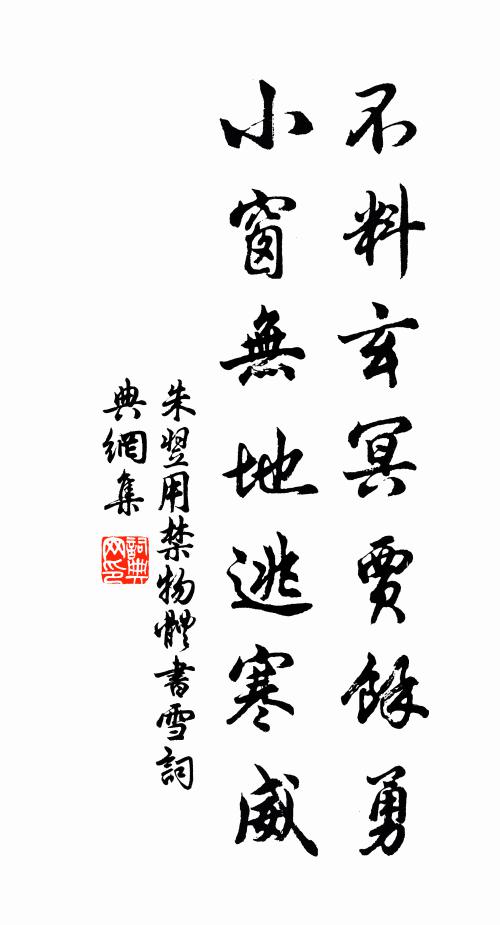 不料玄冥賈餘勇
小窗無地逃寒威
朱翌用禁物體書雪詞
典網集
詞典网印